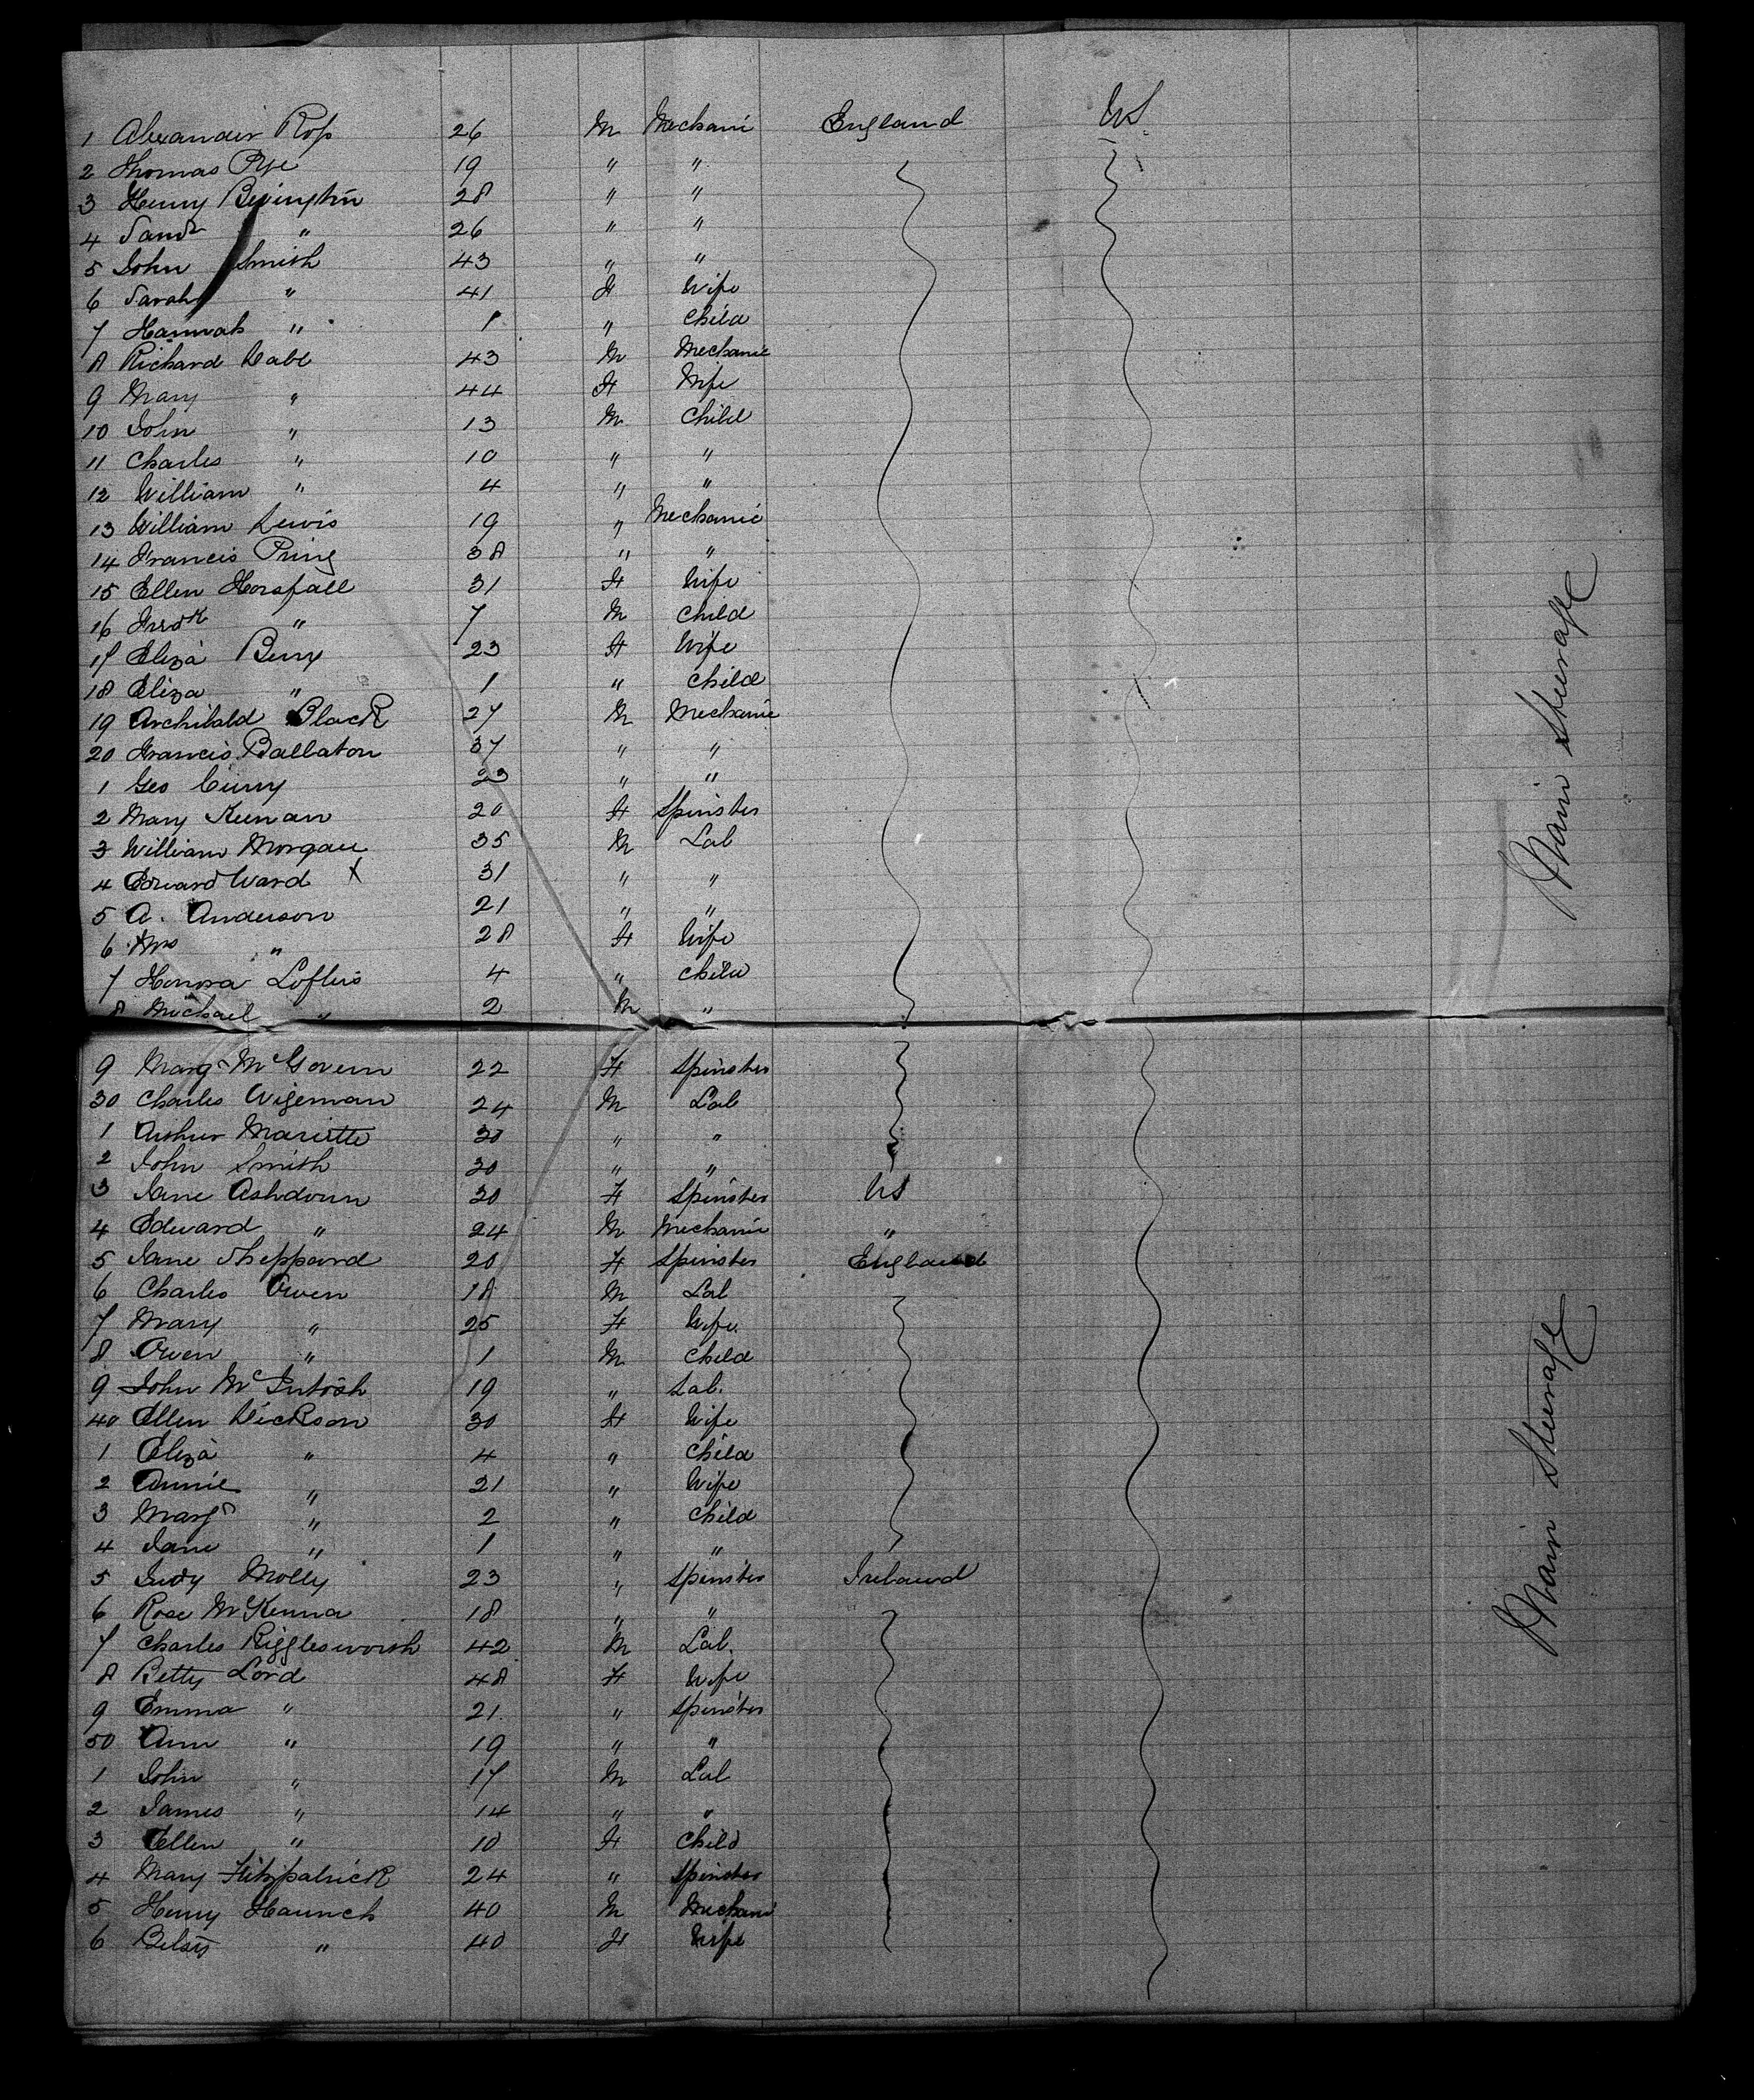 1 Alexander Ross 26 M Mechanic England US
2 Thomas Pye 19 " "
3 Henry Bevington 28 " "
4 Saml " 26 " "
5 John Smith 43 " "
6 Sarah " 41 F Wife
7 Hannah " 1 " Child
8 Richard Cabl 43 M Mechanic
9 Mary " 44 F Wife
10 John " 13 M Child
11 Charles " 10 " "
12 William " 4 " "
13 William Lewis 19 " Mechanic
14 Francis Pring 38 " "
15 Ellen Horsfall 31 F Wife
16 Fredk " 7 M Child
17 Eliza Berry 23 F Wife
18 Eliza " 1 " Child
19 Archibald Black 27 M Mechanic
20 Francis Ballaton 37 " "
1 Geo Curry 23 " "
2 Mary Keenan 20 F Spinster
3 William Morgan 35 M Lab
4 Edward Ward X 31 " "
5 A. Anderson 21 " "
6 Mrs " 28 F Wife
7 Honora Loftus 4 " Child
8 Michael " 2 M "
9 Margt McGovern 22 F Spinster
30 Charles Wigeman 24 M Lab
1 Arthur Mariette 30 " "
2 John Smith 30 " "
3 Jane Ashdown 30 F Spinster US
4 Edward " 24 M Mechanic "
5 Jane Sheppard 20 F Spinster England
6 Charles Owen 18 M Lab
7 Mary " 25 F Wife
8 Owen " 1 M Child
9 John McIntosh 19 " Lab.
40 Ellen Dickson 30 F Wife
1 Eliza " 4 " Child
2 Annie " 21 " Wife
3 Margt " 2 " Child
4 Jane " 1 " "
5 Judy Molly 23 " Spinster Ireland
6 Rose McKenna 18 " "
7 Charles Rigglesworth 42 M Lab.
8 Betty Lord 48 F Wife
9 Emma " 21 " Spinster
50 Ann " 19 " "
1 John " 17 M Lab
2 James " 14 " "
3 Ellen " 10 F Child
4 Mary Fitzpatrick 24 " Spinster
5 Henry Haunch 40 M Mechani
6 Betsy " 40 F Wife
Main Steerage
Main Steerage